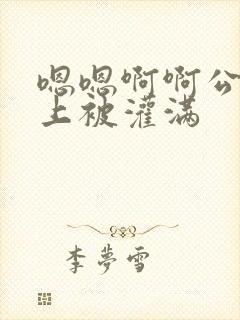 嗯嗯啊啊公
上被灌满
李夢雪